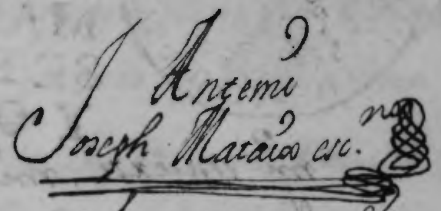 Antemi
Joseph Mataix esc.no